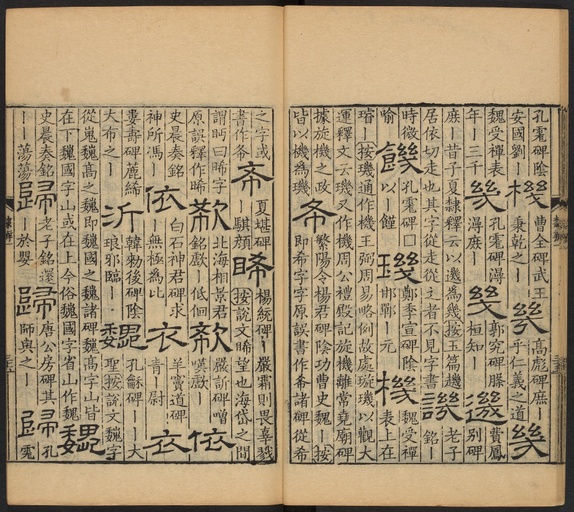 孔霮碑陰安國劉｜機曹全碑武王秉乾之｜幾高彪碑庶乎仁義之道幾
魏受禪表年｜三千幾孔霮碑潯潯庶｜幾郭究碑滕桓知｜邀費鳳別碑
庶｜昔子夏隸釋云以邀為幾按玉篇
居依切走也其字從走從辶者不見字書譏老子銘｜
時徼喻｜饑孔霮碑□以｜饉璣鄭季宣碑陰邯鄲｜元機魏受禪表上在
璿｜按璣通作機王弼周易略例故處璇璣以觀大
運釋文云璣又作機周公禮殿記旋機離常堯廟碑
據旋機之政皆以機為璣希繁陽令楊君碑陰功曹史魏｜按即希字字原誤書作肴諸碑從希
之字或書作肴希夏堪碑｜騏顏睎楊統碑｜嚴霜則畏辜戮按說文睎望也海岱之間
謂眄曰睎字原誤釋作晞欷北海相景君銘歔｜低佪欷嚴訢碑噌嘆歔｜依
史晨奏銘神所馮｜依白石神君碑求｜無極為比衣羊竇道碑青｜尉衣
婁壽碑麤絺大布之｜沂韓勑後碑陰琅邪臨｜魏孔龢碑｜｜大聖按說文魏字
從嵬魏高之魏即魏國之魏諸碑魏高字山皆
在下魏國字山或在上今俗魏國字省山作魏魏
史晨奏銘｜｜蕩蕩歸老子銘還｜於嬰｜歸唐公房碑其師與之｜歸孔霮